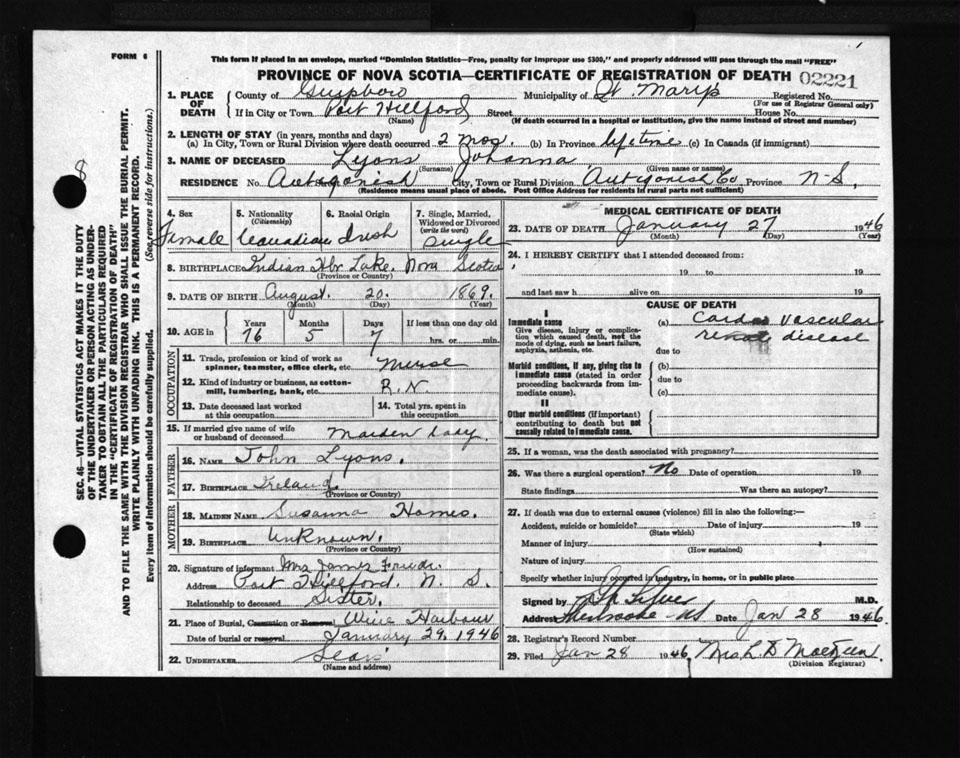 FORM 6
This form if placed in an envelope, marked "Dominion Statistics—Free, penalty for improper use $300," and properly addressed will pass through the mail "FREE"
PROVINCE OF NOVA SCOTIA—CERTIFICATE OF REGISTRATION OF DEATH 02221
SEC. 46—VITAL STATISTICS ACT MAKES IT THE DUTY
OF THE UNDERTAKER OR PERSON ACTING AS UNDER-
TAKER TO OBTAIN ALL THE PARTICULARS REQUIRED
IN THE "CERTIFICATE OF REGISTRATION OF DEATH"
AND TO FILE THE SAME WITH THE DIVISION REGISTRAR WHO SHALL ISSUE THE BURIAL PERMIT.
WRITE PLAINLY WITH UNFADING INK. THIS IS A PERMANENT RECORD.
Every item of information should be carefully supplied. (See reverse side for instructions.)
8
1. PLACE OF DEATH
County of Guysboro Municipality of St. Mary's Registered No.
(For use of Registrar General only)
If in City or Town Port Hillford Street House No.
(Name) (If death occurred in a hospital or institution, give the name instead of street and number)
2. LENGTH OF STAY (in years, months and days)
(a) In City, Town or Rural Division where death occurred 2 mos. (b) In Province lifetime (c) In Canada (if immigrant)
3. NAME OF DECEASED Lyons Johanna
(Surname) (Given name or names)
RESIDENCE No. Antigonish City, Town or Rural Division Antigonish Co Province N-S.
(Residence means usual place of abode. Post Office Address for residents in rural parts not sufficient)
4. Sex
Female
5. Nationality
(Citizenship)
Canadian
6. Racial Origin
Irish
7. Single, Married,
Widowed or Divorced
(write the word)
Single
8. BIRTHPLACE Indian Hbr Lake, Nova Scotia
(Province or Country)
9. DATE OF BIRTH August 20. 1869.
(Month) (Day) (Year)
10. AGE in Years Months Days If less than one day old
76 5 7 hrs. or min.
OCCUPATION
11. Trade, profession or kind of work as
spinner, teamster, office clerk, etc. Nurse
12. Kind of industry or business, as cotton-
mill, lumbering, bank, etc. R.N
13. Date deceased last worked
at this occupation
14. Total yrs. spent in
this occupation
15. If married give name of wife
or husband of deceased Maiden lady.
FATHER
16. NAME John Lyons.
17. BIRTHPLACE Ireland
(Province or Country)
MOTHER
18. MAIDEN NAME Susanna
19. BIRTHPLACE Unknown.
(Province or Country)
20. Signature of informant Mrs James
Address Port Hillford. N. S.
Relationship to deceased Sister.
21. Place of Burial, Cremation or Removal Wine Harbour
Date of burial or removal January 29, 1946
22. UNDERTAKER
(Name and address)
MEDICAL CERTIFICATE OF DEATH
23. DATE OF DEATH January 27 1946
(Month) (Day) (Year)
24. I HEREBY CERTIFY that I attended deceased from:
19 to 19
and last saw h alive on 19
CAUSE OF DEATH
I
Immediate cause
Give disease, injury or complica-
tion which caused death, not the
mode of dying, such as heart failure,
asphyxia, asthenia, etc.
(a) Cardio vascular
renal disease
due to
Morbid conditions, if any, giving rise to
immediate cause (stated in order
proceeding backwards from im-
mediate cause).
(b)
due to
(c)
II
Other morbid conditions (if important)
contributing to death but not
causally related to immediate cause.
25. If a woman, was the death associated with pregnancy?
26. Was there a surgical operation? No Date of operation 19
State findings Was there an autopsy?
27. If death was due to external causes (violence) fill in also the following:—
Accident, suicide or homicide? Date of injury 19
(State which)
Manner of injury
(How sustained)
Nature of injury
Specify whether injury occurred in industry, in home, or in public place
Signed by M.D.
Address Sherbrooke NS Date Jan 28 1946
28. Registrar's Record Number
29. Filed Jan 28 1946 Mrs. L. D
(Division Registrar)